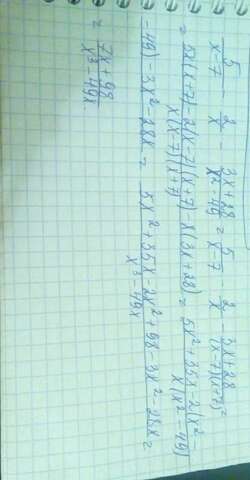 5/(x-7) - 2/x - (3x+28)/(x²-49) = 5/(x-7) - 2/x - (3x+28)/((x-7)(x+7)) =
= (5x(x+7) - 2(x-7)(x+7) - x(3x+28))/(x(x-7)(x+7)) = (5x²+35x-2(x²-
-49) - 3x²-28x)/(x(x²-49)) = (5x²+35x-2x²+98-3x²-28x)/(x³-49x) =
= (7x+98)/(x³-49x).